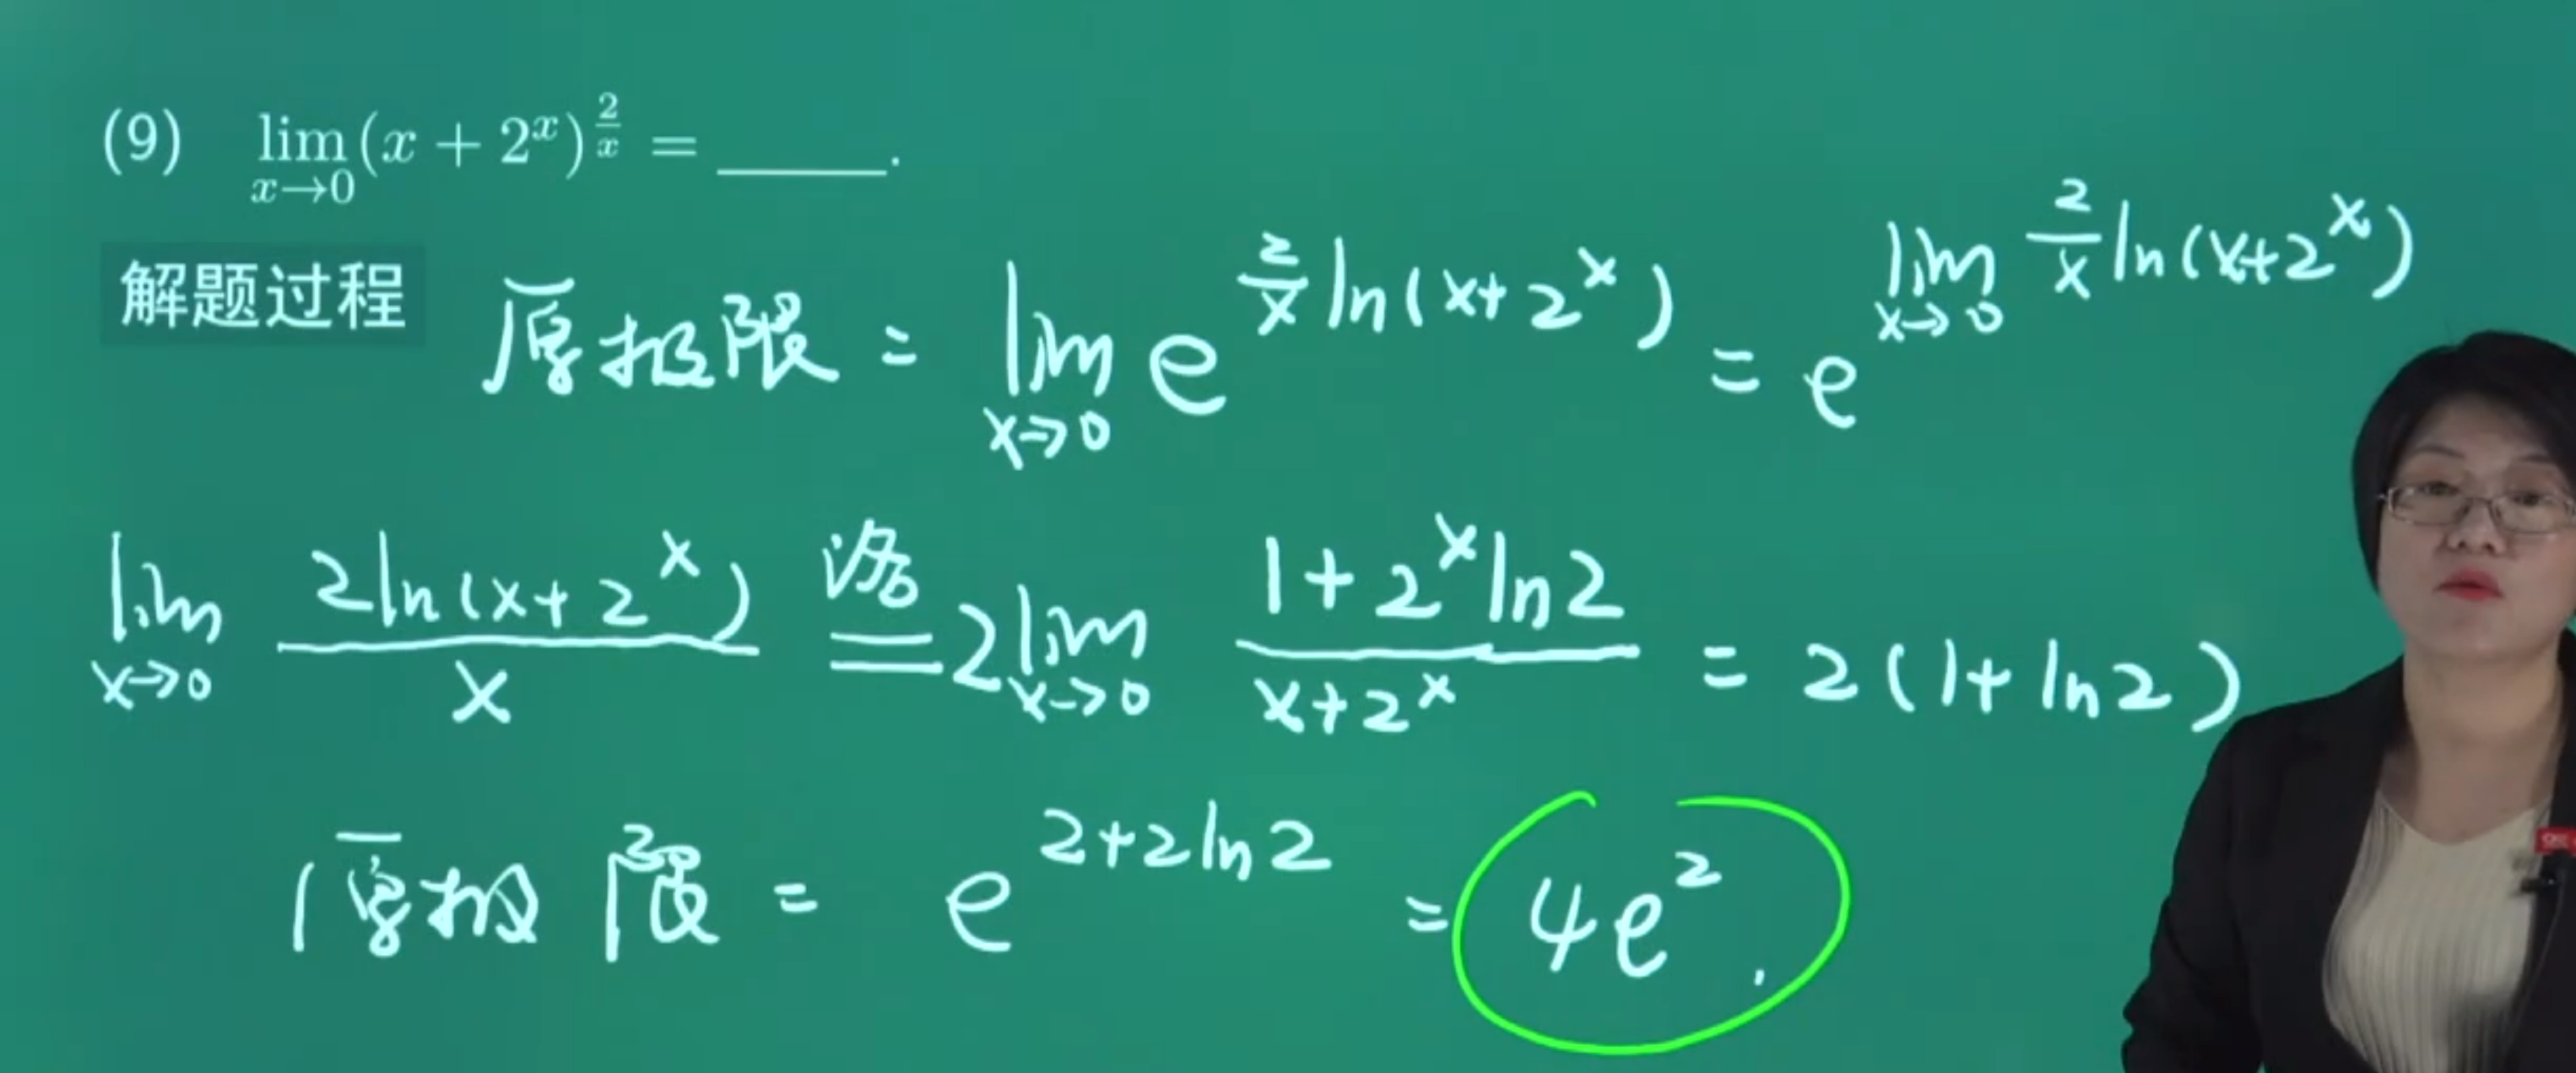 (9) lim_{x→0} (x + 2^x)^{2/x} = ____.
解题过程 原极限 = lim_{x→0} e^{2/x ln(x+2^x)} = e^{lim_{x→0} 2/x ln(x+2^x)}
lim_{x→0} 2ln(x+2^x)/x 洛= 2lim_{x→0} (1+2^x ln2)/(x+2^x) = 2(1+ln2)
原极限 = e^{2+2ln2} = 4e^2.